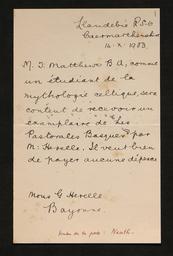 Llandebie R.S.O
Caermarthenshire
14. X. 1903.
M. J. Matthews B A, comme
un étudiant de la
mythologie celtique, sera
content de recevoir un
exemplaire de Les
Pastorales Basques par
M. Herelle. Il veut bien
de payer aucune dépense
Mons G Herelle
Bayonne.
Neath.